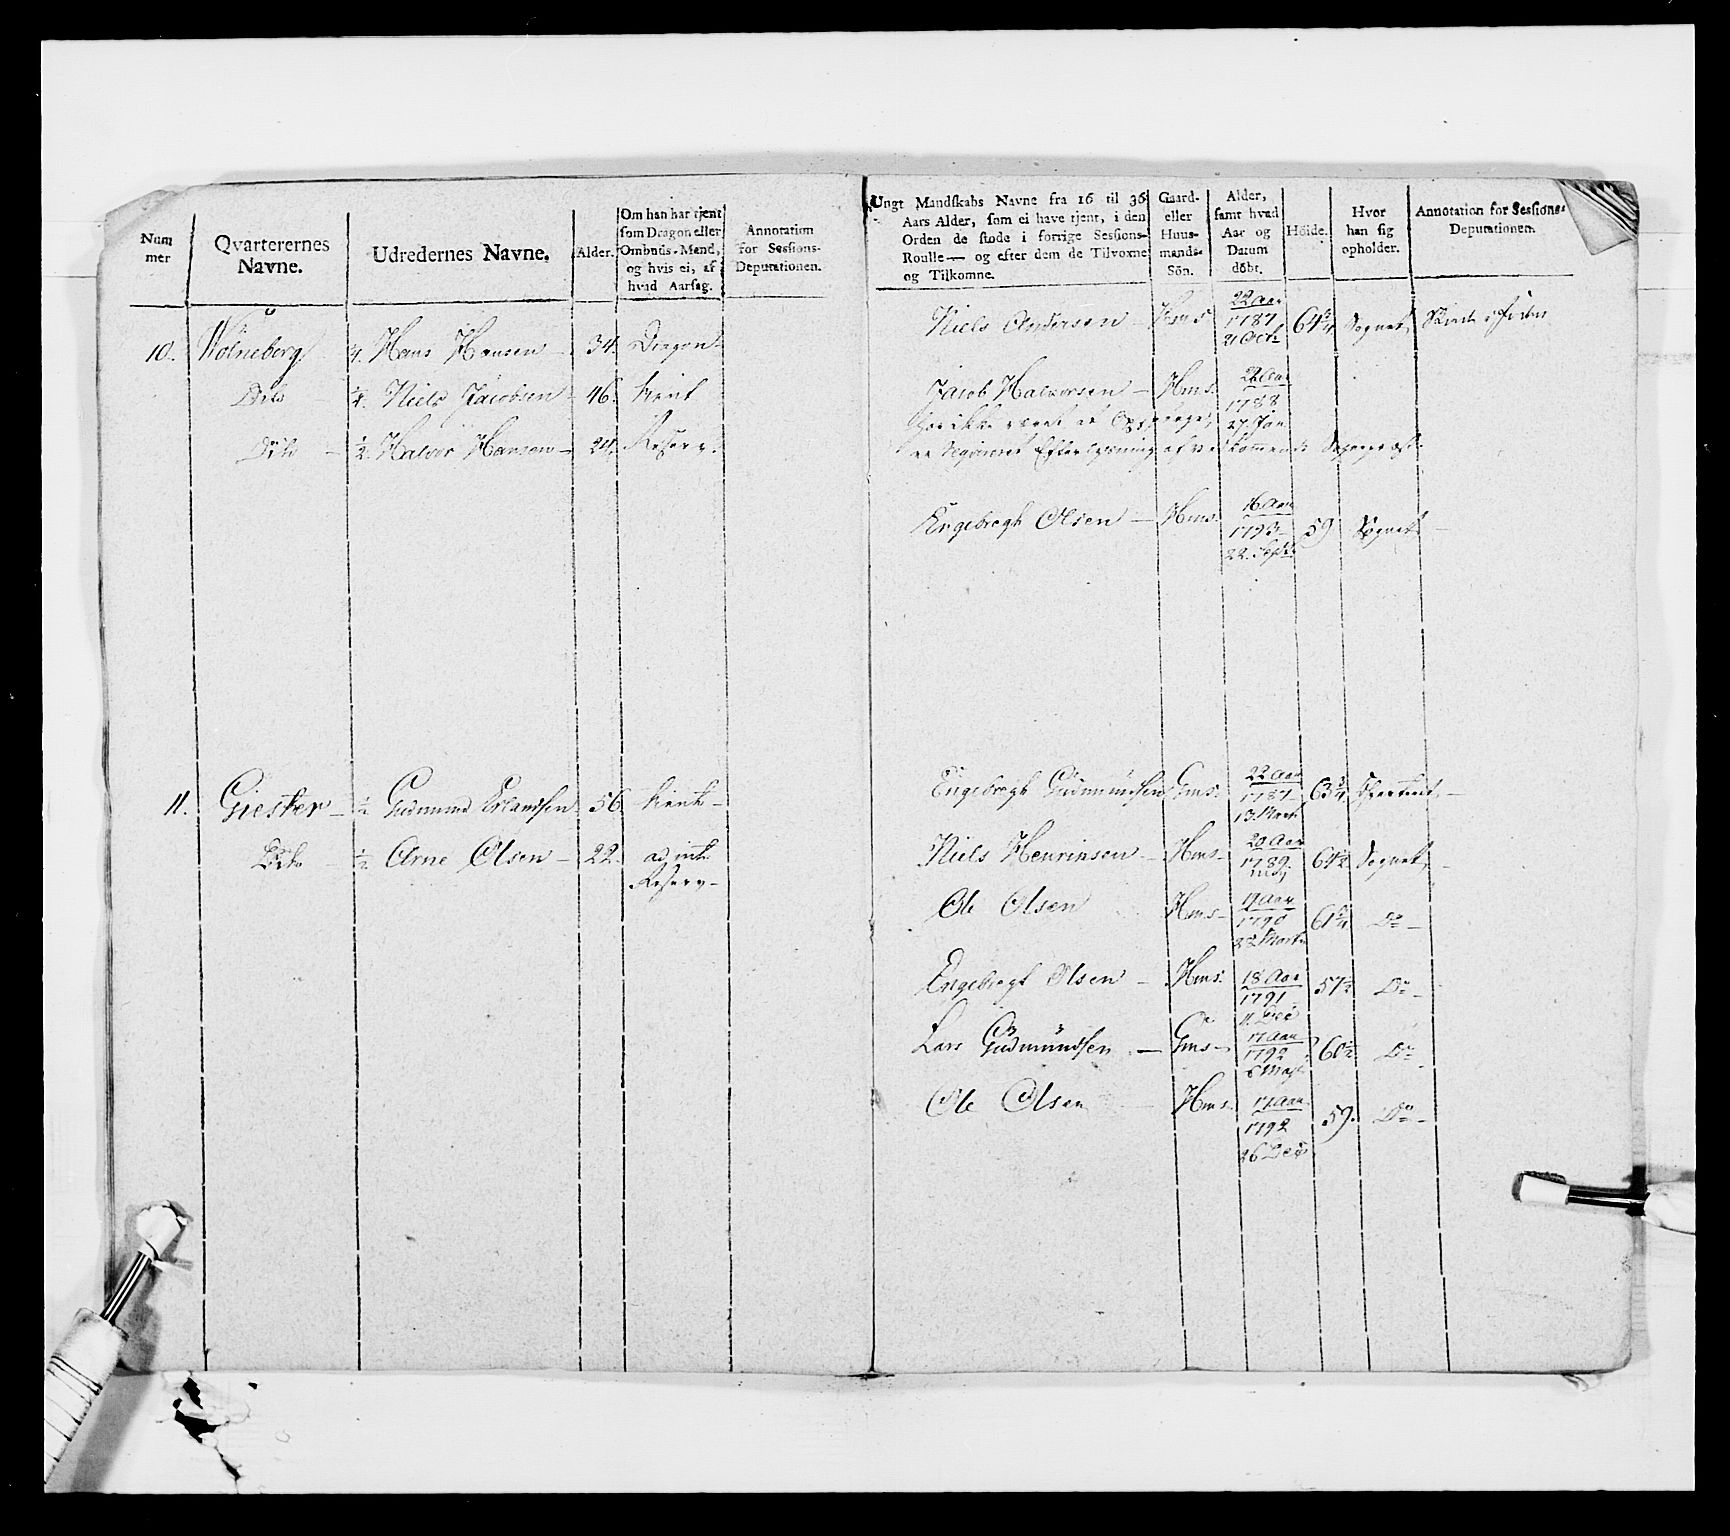 Num
mer
Qvarterernes
Navne.
Udredernes Navne.
Alder.
Om han har tjent
som Dragon eller
Ombuds-Mand,
og hvis ei, af
hvad Aarsag.
Annotation
for Sessions-
Deputationen.
10.
¼. Hans Hansen — 34. Dragon
Dito ¼. Niels Jacobsen 46. tient
Dito — ½. Halvor Hansen — 24. Reserv.
11. Giester — ½ Gudmund Erlandsen 56. tient —
Dito — ½ Arne Olsen — 22.
Reserv —
Ungt Mandskabs Navne fra 16 til 36
Aars Alder, som ei have tjent, i den
Orden de stode i forrige Sessions-
Roulle — og efter dem de Tilvoxne
og Tilkomne.
Gaard-
eller
Huus-
mands-
Sön.
Alder,
samt hvad
Aar og
Datum
döbt.
Höide.
Hvor
han sig
opholder.
Annotation for Sessions-
Deputationen.
Niels Andersen — Hms 22 Aar
1787
21 Oct 64¾ Sognet
Jacob Halvorsen — Hms.
1788
27 Jan
Engebregt Olsen — Hms. 16 Aar
1793
22. Sept 59 Sognet —
Engebregt Gudmundsen Gms. 22 Aar
1787
13 Martz 63¾
Niels Henriksen — Hms — 20 Aar
1789 64½ Sognet
Ole Olsen Hms — 19 Aar
1790 61¾ Do —
Engebregt Olsen — Hms. 18 Aar
1791
11. Dec 57½ Do —
Lars Gudmundsen — Gms — 17 Aar
1792 60½ Do
Ole Olsen Hms. 17 Aar
1792
26 Dec 59. Do —